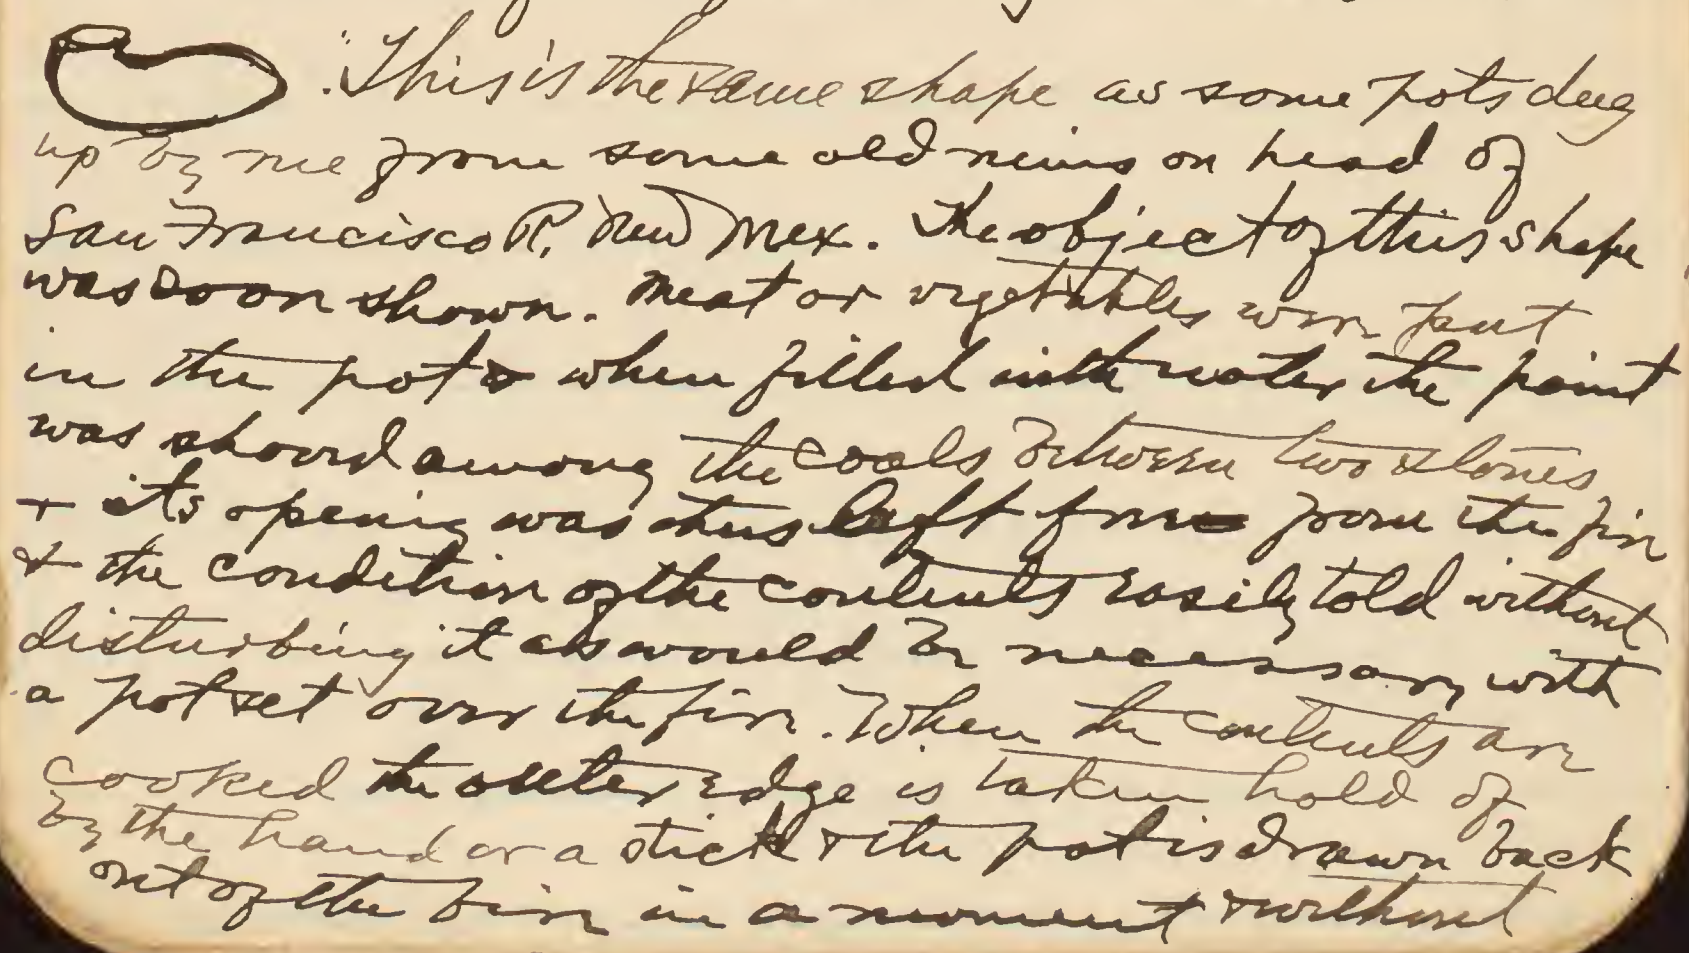 This is the same shape as some pots dug
up by me from some old ruins on head of
San Francisco R. New Mex. The object of this shape
was soon shown. Meat or vegetables were put
in the pot & when filled with water the point
was shoved among the coals between two stones
+ its opening was thus left free from the fire
& the condition of the contents easily told without
disturbing it as would be necessary with
a pot set over the fire. When the contents are
cooked the outer edge is taken hold of
by the hand or a stick & the pot is drawn back
out of the fire in a moment & without